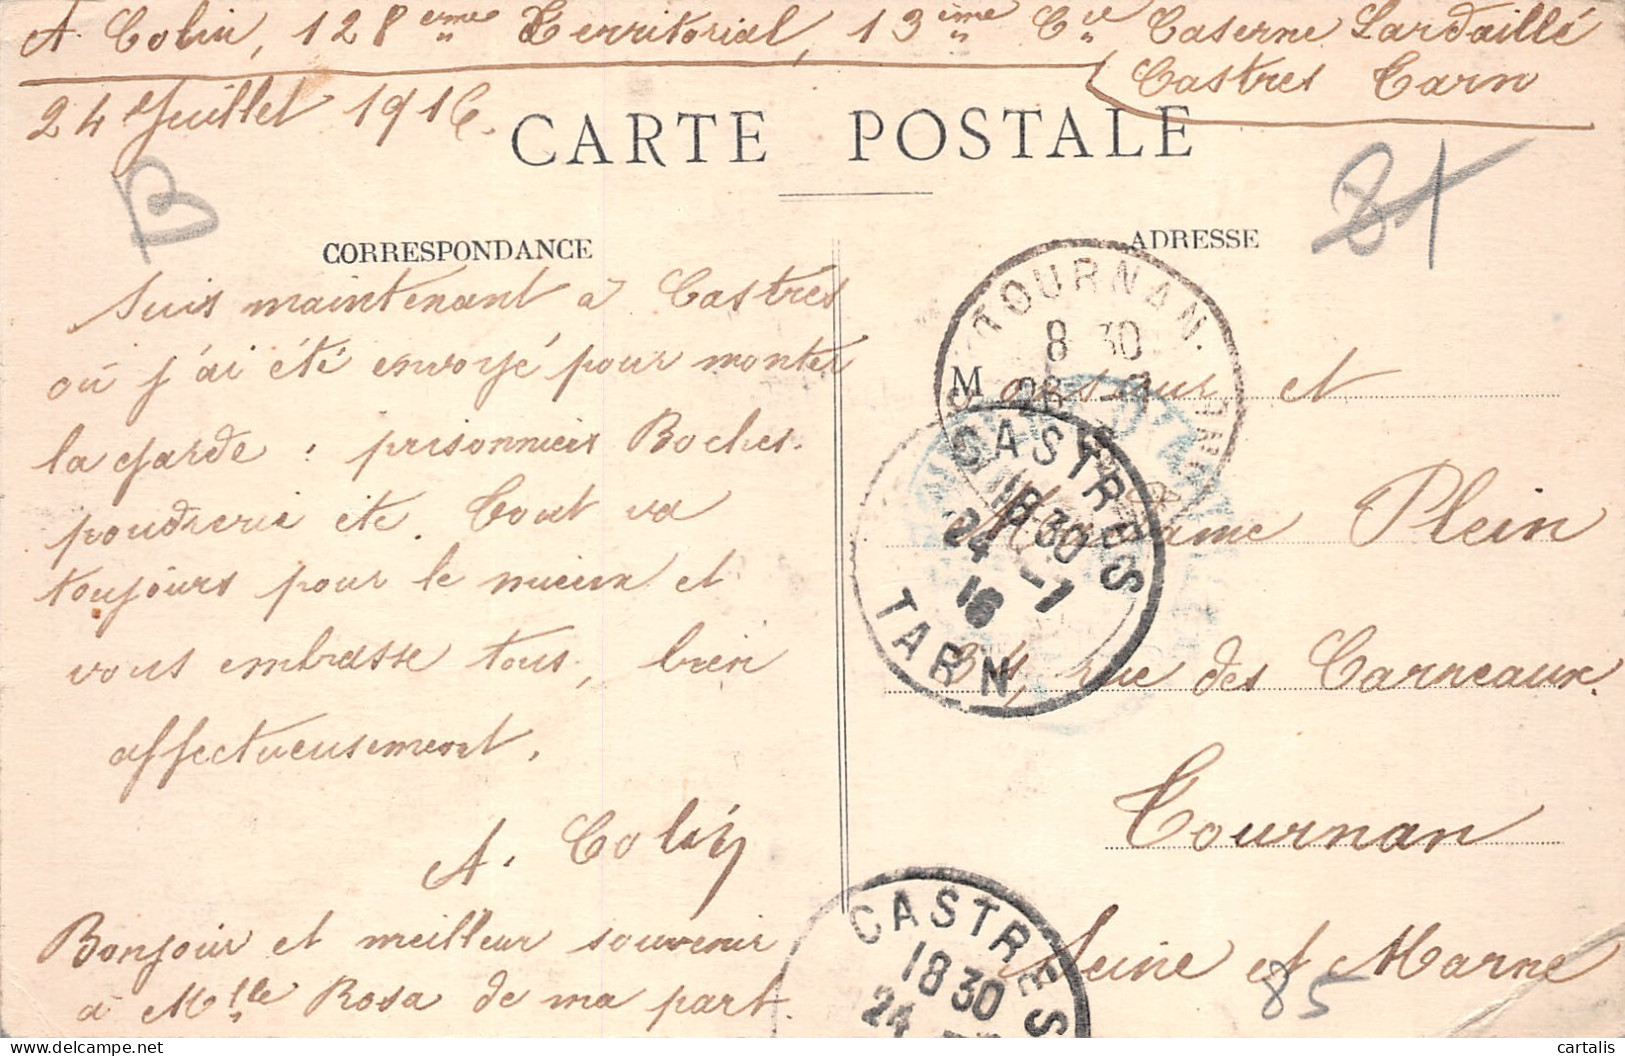 A. Colin, 128eme Territorial, 13ième Cie Caserne Lardaillé
Castres Tarn
24 Juillet 1916.
CARTE POSTALE
B
81
CORRESPONDANCE
ADRESSE
Suis maintenant à Castres
où j'ai été envoyé pour monter
la garde : prisonniers Boches.
poudrerie etc. Tout va
toujours pour le mieux et
vous embrasse tous, bien
affectueusement.
A. Colin
Bonjour et meilleur souvenir
à Mlle Rosa de ma part.
Monsieur et
Madame Plein
rue des Carneaux.
Tournan
Seine et Marne
85
TOURNAN.
8 30
CASTRES
18 30
24 -7
16
TARN
CASTRES
18 30
24
cartalis